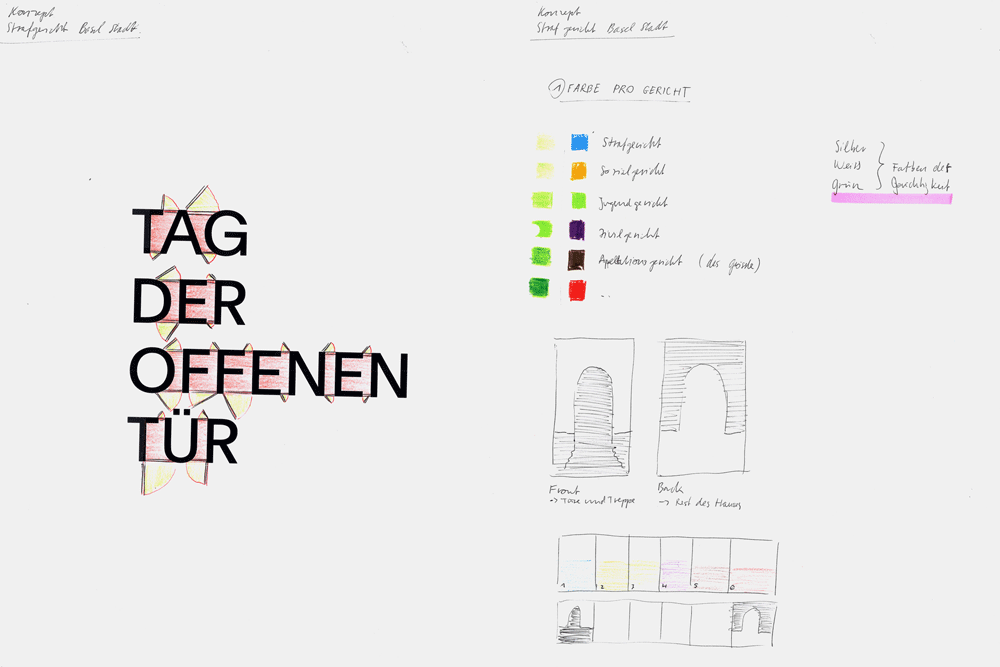 Konzept
Strafgericht Basel Stadt.
TAG
DER
OFFENEN
TÜR
Konzept
Strafgericht Basel Stadt
① FARBE PRO GERICHT
Strafgericht
Sozialgericht
Jugendgericht
Zivilgericht
Appellationsgericht (das grösste)
...
Silber
Weiss
grün
Farben der
Gerechtigkeit
Front
→ Türe und Treppe
Back
→ Rest des Hauses
1 2 3 4 5 6